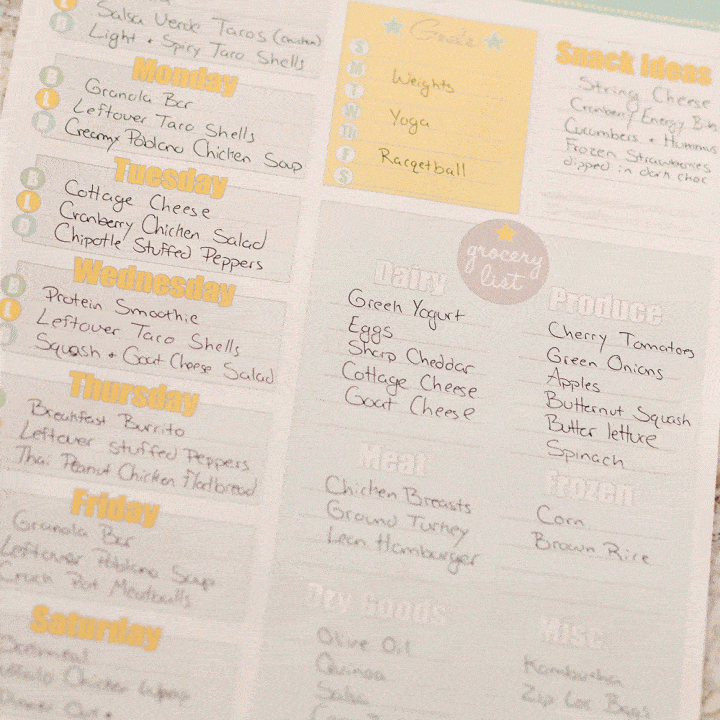 L Salsa Verde Tacos (chicken)
D Light + Spicy Taco Shells
Monday
B Granola Bar
L Leftover Taco Shells
D Creamy Poblano Chicken Soup
Tuesday
B Cottage Cheese
L Cranberry Chicken Salad
D Chipotle Stuffed Peppers
Wednesday
B Protein Smoothie
L Leftover Taco Shells
D Squash + Goat Cheese Salad
Thursday
Breakfast Burrito
Leftover Stuffed Peppers
Thai Peanut Chicken Flatbread
Friday
Granola Bar
Leftover Poblano Soup
Crock Pot Meatballs
Saturday
Oatmeal
Buffalo Chicken Wraps
Dinner Out
Goals
S
M
T Weights
W
TH Yoga
F
S Racqetball
Snack Ideas
String Cheese
Cranberry Energy
Cucumbers + Hummus
Frozen Strawberries
dipped in dark choc
grocery
list
Dairy
Greek Yogurt
Eggs
Sharp Cheddar
Cottage Cheese
Goat Cheese
Produce
Cherry Tomatoes
Green Onions
Apples
Butternut Squash
Butter lettuce
Spinach
Meat
Chicken Breasts
Ground Turkey
Lean Hamburger
Frozen
Corn
Brown Rice
Dry Goods
Olive Oil
Quinoa
Salsa
Misc.
Kombucha
Zip Loc Bags